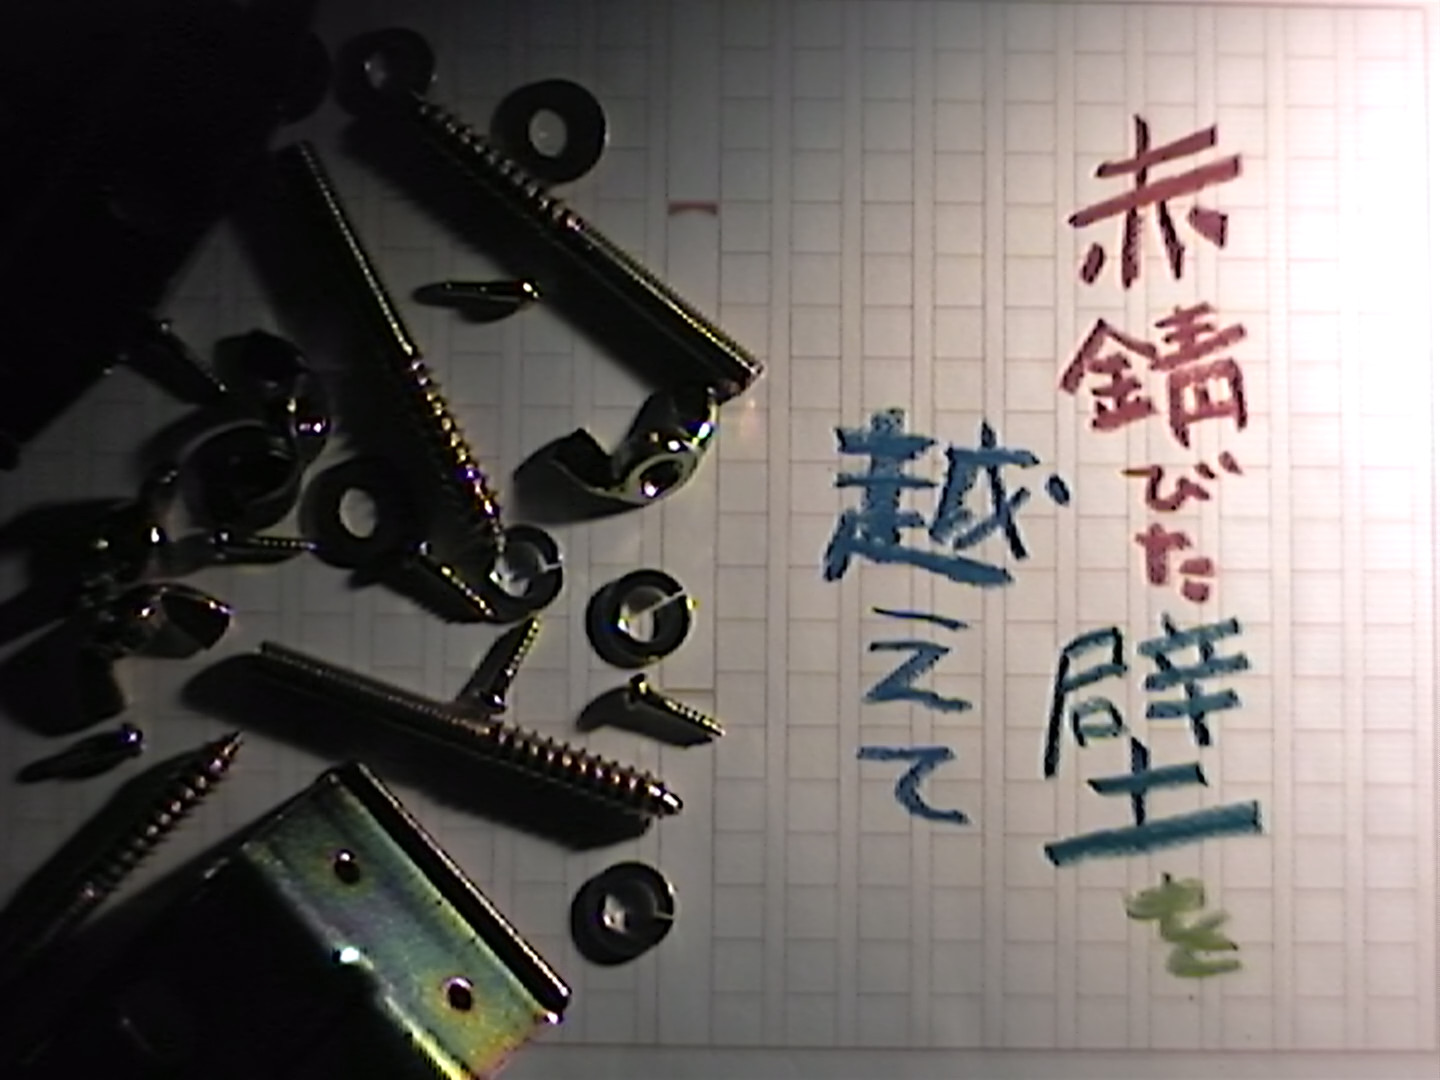 赤錆びた壁を
越えて